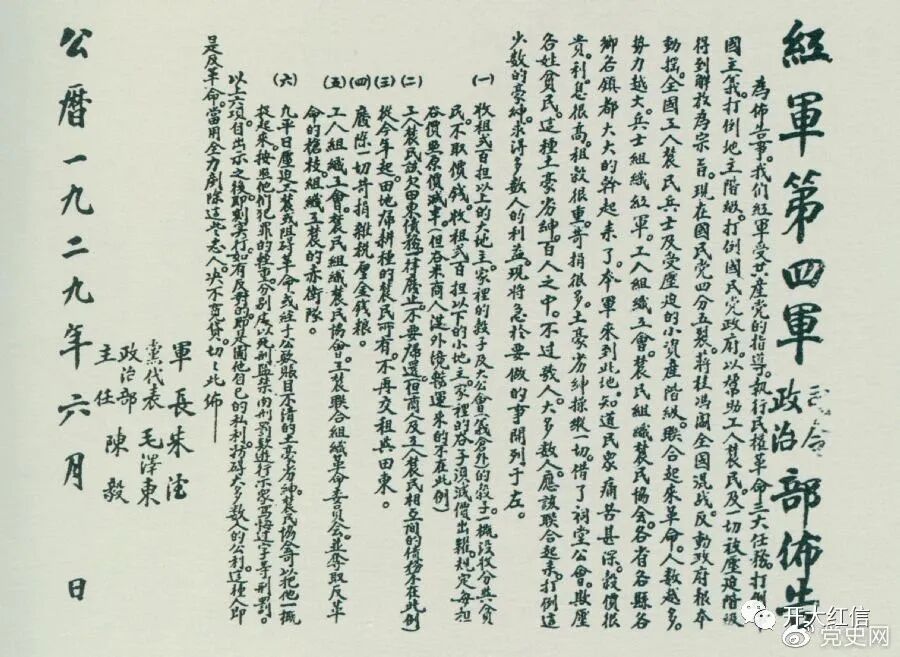 紅軍第四軍司令政治部佈告
為佈告事。我們紅軍受共產党的指導。執行民權革命三大任務。打倒
國主義。打倒地主階級。打倒國民党政府。以幫助工人農民及一切被壓迫階級
得到解放為宗旨。現在國民党四分五裂。蔣桂馮閻全國混战。反動政府根本
動搖。全國工人農民兵士及受壓迫的小資產階級。聯合起來革命。人数越多。
勢力越大。兵士組織紅軍。工人組織工會。農民組織農民協会。各省各縣各
鄉各鎮都大大的幹起來了。本軍來到此地。知道民衆痛苦甚深。穀價很
貴。利息很高。租穀很重。苛捐很多。土豪劣紳操縱一切。借了祠堂公會。欺壓
各姓貧民。這種土豪劣紳。百人之中。不过数人。大多数人。應該联合起来。打倒這
少数的豪紳。求得多数人的利益。現将急於要做的事開列于左。
(一) 收租弍百担以上的大地主。家裡的穀子及大公會(義倉外)的穀子一概没收分與貧
民。不取價錢。收租弍百担以下的小地主。家裡的谷子須減價出糶。規定每担
谷價照原價減半。(但谷米商人從外境轉運来的不在此例)
(二) 工人農民該欠田東債務。一律廢止。不要歸還。(但商人及工人農民相互間的債務不在此例)
(三) 從今年起。田地歸耕種的農民所有。不再交租與田東。
(四) 廢除一切苛捐雜税厘金錢粮。
(五) 工人組織工會。農民組織農民協會。工農联合組織革命委員会。並奪取反革
命的槍枝組織工農的赤衛隊。
(六) 凡平日壓迫工農或阻碍革命。或經手公款賬目不清的土豪劣紳。農民協会可以把他一概
捉起來。按照他們犯罪的輕重。分別處以死刑監禁罰款遊行示家寫悔过字等刑罰。
以上六項自出示之後。即刻实行。如有反對的。即是國他自己的私利。妨碍大多数人的公利。這種人即
是反革命。當用全力剷除這些惡人。决不寬貸。切切此佈
軍長 朱德
黨代表 毛澤東
政治部主任 陳毅
公曆一九二九年六月 日
开大红信
党史网